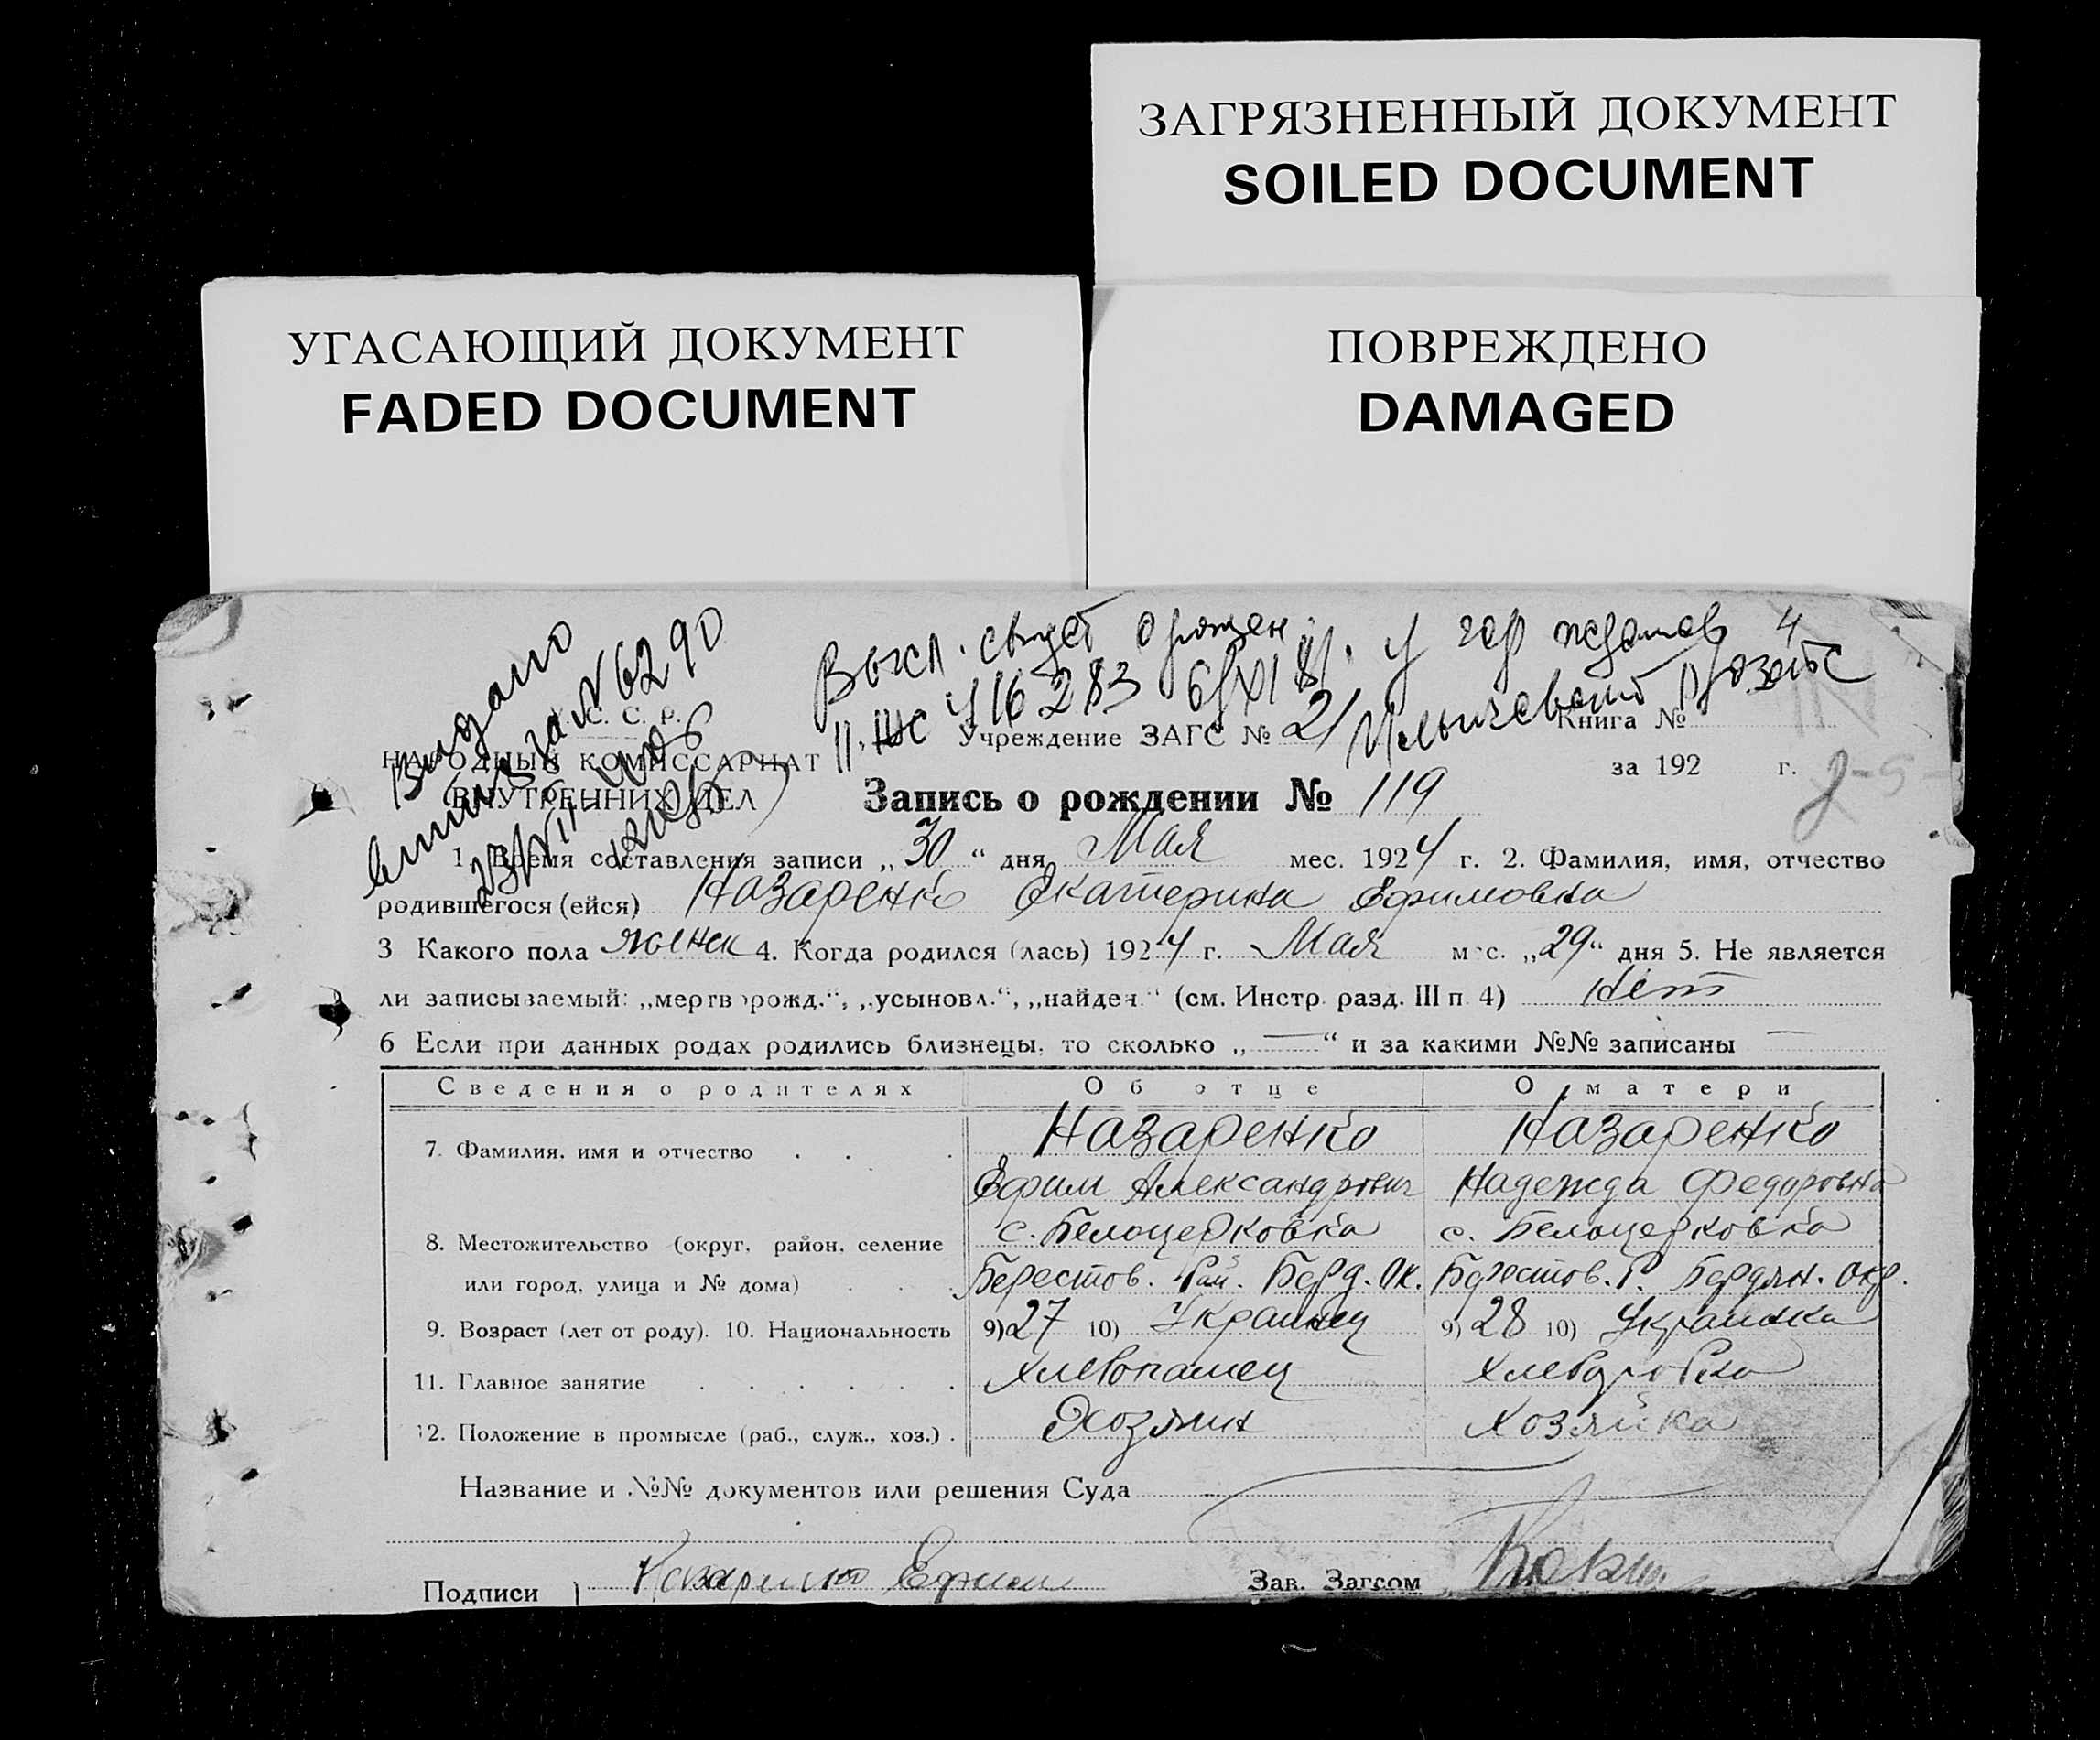 ЗАГРЯЗНЕННЫЙ ДОКУМЕНТ
SOILED DOCUMENT
УГАСАЮЩИЙ ДОКУМЕНТ
FADED DOCUMENT
ПОВРЕЖДЕНО
DAMAGED
Выдано
за №6290
У. С. С. Р.
НАРОДНЫЙ КОМИССАРИАТ
ВНУТРЕННИХ ДЕЛ
16283
Учреждение ЗАГС № 21
Книга №
за 192 г.
Запись о рождении № 119
1. Время составления записи „30“ дня Мая мес. 1924 г. 2. Фамилия, имя, отчество
родившегося (ейся) Назаренко Екатерина Ефимовна
3 Какого пола женск 4. Когда родился (лась) 1924 г. Мая мес. „29“ дня 5. Не является
ли записываемый: „мертворожд.“, „усыновл.“, „найден.“ (см. Инстр. разд. III п. 4) Нет
6 Если при данных родах родились близнецы, то сколько „—“ и за какими №№ записаны —
Сведения о родителях Об отце О матери
7. Фамилия, имя и отчество Назаренко Назаренко
Ефим Александрович Надежда Федоровна
8. Местожительство (округ, район, селение с. Белоцерковка с. Белоцерковка
или город, улица и № дома) Берестов. Рай. Берд. Ок. Берестов. Р. Бердян. Окр.
9. Возраст (лет от роду). 10. Национальность 9) 27 10) Украинец 9) 28 10) Украинка
11. Главное занятие Хлебопашец
12. Положение в промысле (раб., служ., хоз.) Хозяин Хозяйка
Название и №№ документов или решения Суда
Подписи Назаренко Ефим Зав. Загсом